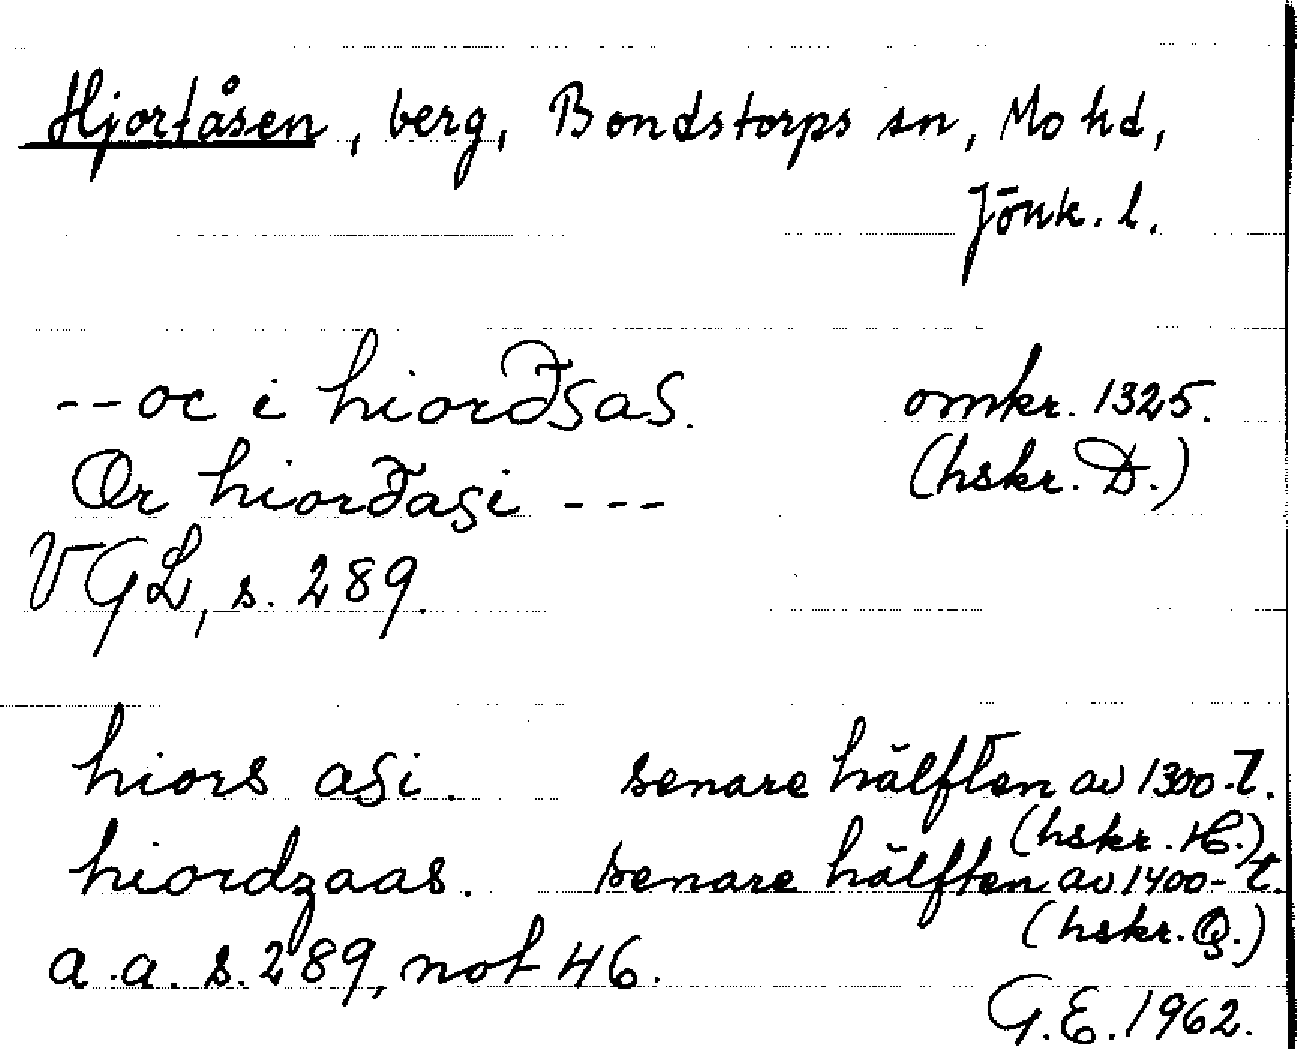 Hjortåsen, berg, Bondstorps sn, Mo hd,
Jönk. l.
--oc i hiorðsas. omkr. 1325.
Or hiorðasi --- (hskr. D.)
VGL, s. 289.
hiors asi. senare hälften av 1300-t.
(hskr. H.)
hiordzaas. senare hälften av 1400-t.
(hskr. Q.)
a.a. s. 289, not 46.
G.E. 1962.